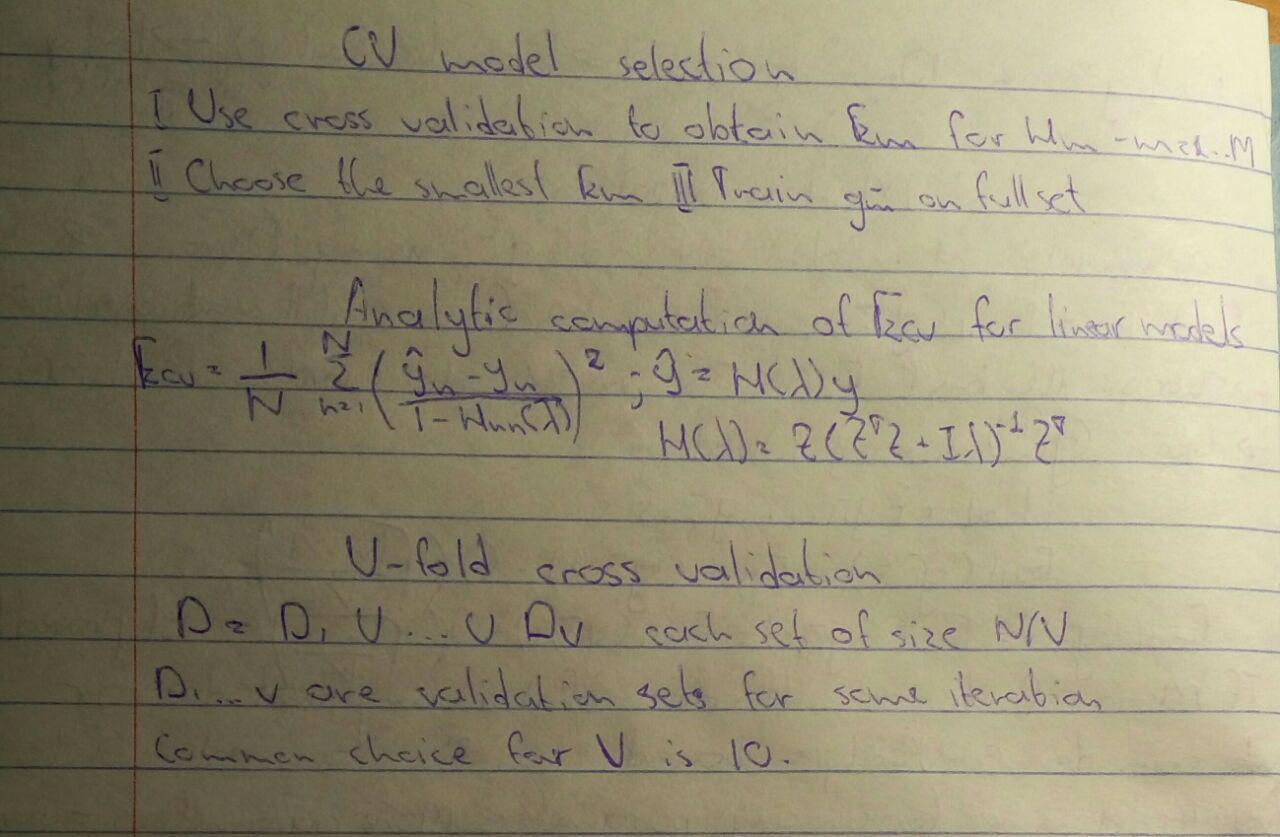 CV model selection
I Use cross validation to obtain Em for Hm - m=1..M
II Choose the smallest Em III Train gm̄ on full set
Analytic computation of Ecv for linear models
Ecv = 1/N N Σ n=1 (ŷn - yn / 1 - Hnn(λ))² ; ŷ = H(λ)y
H(λ) = Z(ZᵀZ + Iλ)⁻¹Zᵀ
V-fold cross validation
D = D₁ ∪ ... ∪ Dv each set of size N/V
D₁...v are validation sets for some iteration
Common choice for V is 10.